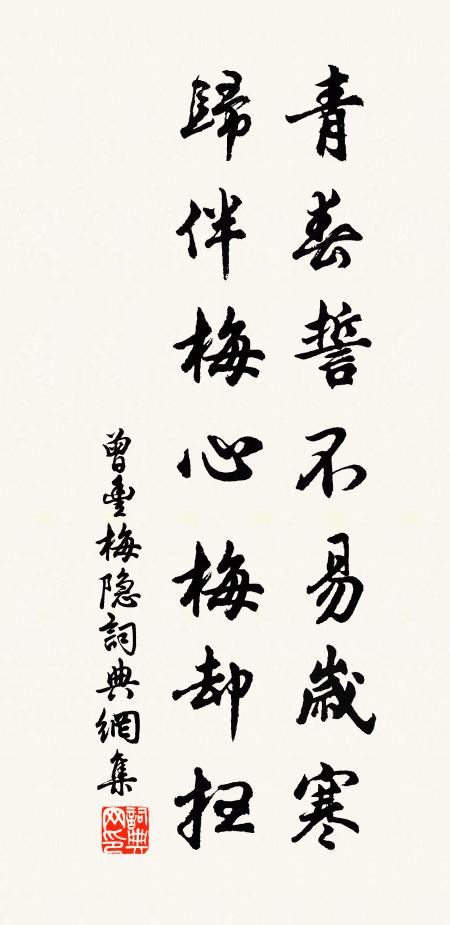 青春誓不易歲寒
歸伴梅心梅却扭
曾豐梅隐詞典網集
詞典网印